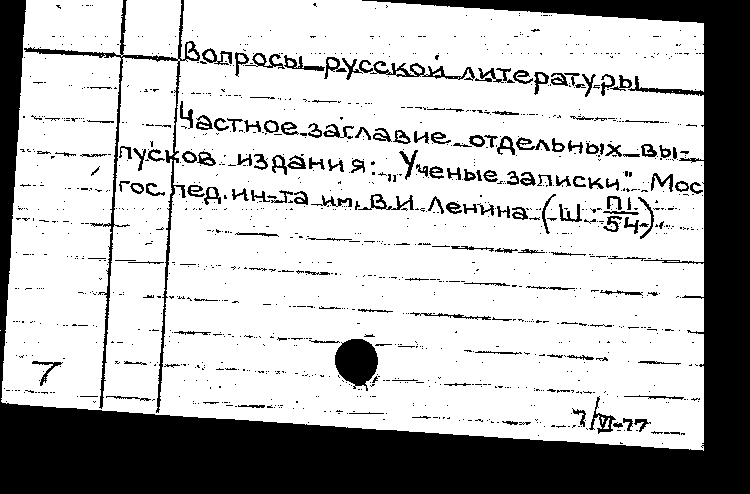 Вопросы русской литературы
Частное заглавие отдельных вы-
пусков издания: „Ученые записки" Мос
гос. пед. ин-та им. В.И Ленина (Ш. П1/54).
7
7/VI-77